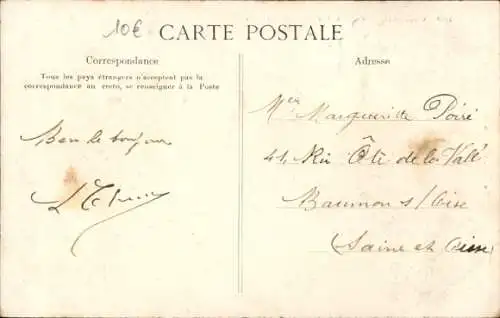 10€
CARTE POSTALE
Correspondance
Tous les pays étrangers n'acceptent pas la
correspondance au recto, se renseigner à la Poste
Adresse
Bien le bonjour
Marguerite Poiré
41, Rue Ôté de la Vallé
Baumon s/ Oise
(Saine et Oise)